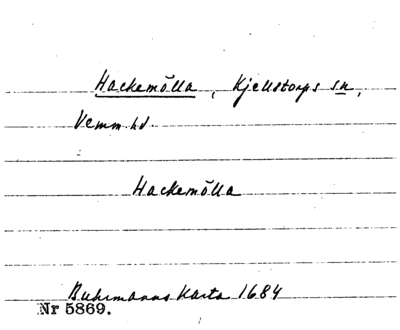 Hackemölla, Kjellstorps sn,
Vemm. hd.
Hackemölla
Buhrmanns Karta 1684
Nr 5869.